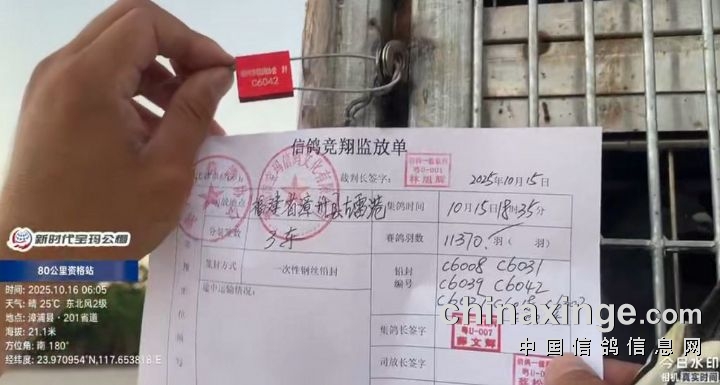 C6042
信鸽竞翔监放单
裁判长签字:
信鸽一级裁判
粤U-001
林旭辉
2025年10月15日
司放地点
福建省漳州县古雷港
集鸽时间
10月15日18时35分
分装笼数
3车
赛鸽羽数
11370羽(   羽)
集封方式
一次性钢丝铅封
铅封编号
C6008 C6031
C6039 C6042
途中运输情况:
集鸽长签字
粤U-007
薛文辉
司放长签字
信鸽一级裁判
新时代宝玛公棚
80公里资格站
时间: 2025.10.16 06:05
天气: 晴 25℃ 东北风2级
地点: 漳浦县·201省道
海拔: 21.1米
方位角: 南 180°
经纬度: 23.970954°N,117.653818°E
chinaxinge.com
中国信鸽信息网
今日水印
相机 真实时间